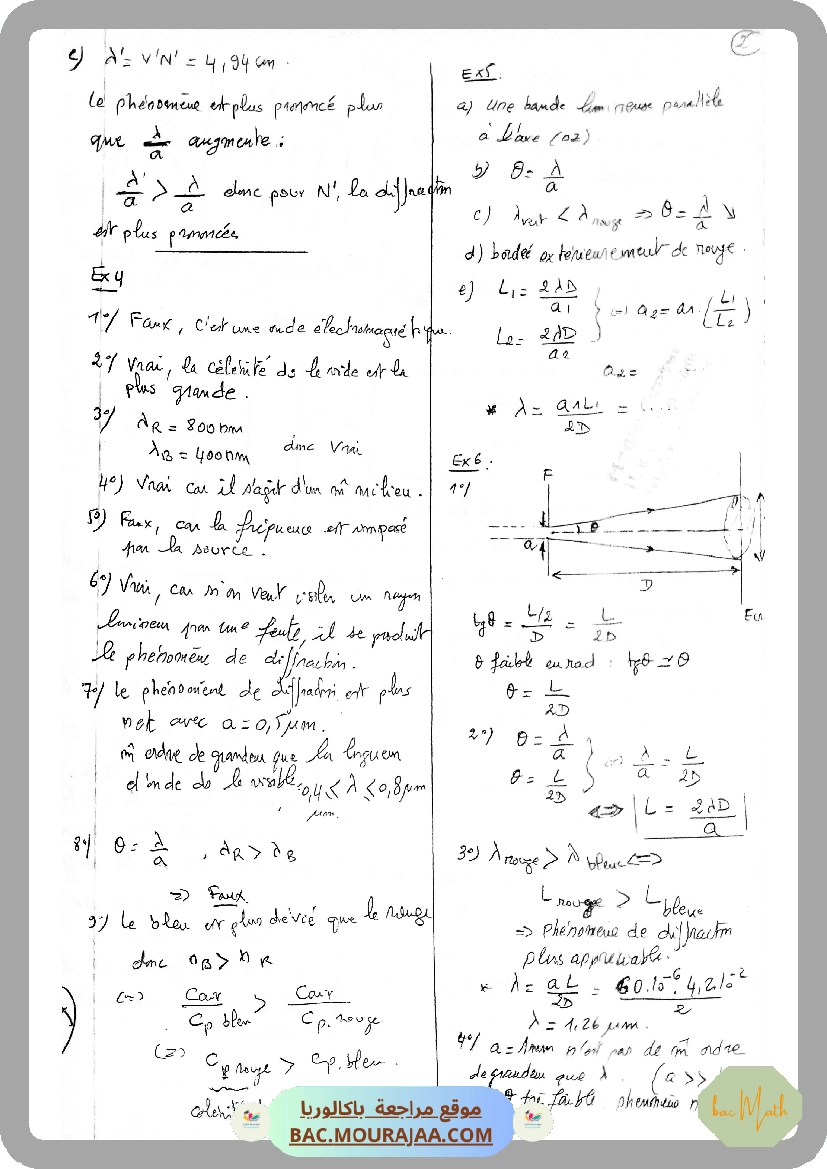 2
c) λ' = V'N' = 4,94 cm.
le phénomène est plus prononcé plus
que λ/a augmente :
λ'/a > λ/a donc pour N', la diffraction
est plus prononcée
Ex 4
1°/ Faux, c'est une onde électromagnétique.
2°/ Vrai, la célérité ds le vide est la
plus grande.
3°/ λR = 800 nm
λB = 400 nm donc Vrai
4°) Vrai car il s'agit d'un m̂ milieu.
5°) Faux, car la fréquence est imposé
par la source.
6°) Vrai, car si on veut isoler un rayon
lumineux par une fente, il se produit
le phénomène de diffraction.
7°/ le phénomène de diffraction est plus
net avec a = 0,5 μm.
m̂ ordre de grandeur que la longueur
d'onde ds le visible 0,4 ≤ λ ≤ 0,8 μm
μm.
8°/ θ = λ/a , λR > λB
=> Faux
9°/ Le bleu est plus dévié que le rouge
donc nB > nR
(=) Cair/Cp bleu > Cair/Cp. rouge
(=) Cp rouge > Cp. bleu.
Ex 5:
a) Une bande lumineuse parallèle
à l'axe (oz)
b) θ = λ/a
c) λvert < λrouge => θ = λ/a ↘
d) bordée extérieurement de rouge.
e) L1 = 2λD/a1
L2 = 2λD/a2 } => a2 = a1.(L1/L2)
a2 =
* λ = a1L1/2D = ....
Ex 6 :
1°/
F
a
θ
D
tgθ = L/2/D = L/2D
θ faible en rad : tgθ ≃ θ
θ = L/2D
2°) θ = λ/a
θ = L/2D } <=> λ/a = L/2D
<=> L = 2λD/a
3°) λrouge > λbleue <=>
Lrouge > Lbleue
=> Phénomène de diffraction
plus appréciable.
* λ = aL/2D = 60.10⁻⁶. 4,2.10⁻²/2
λ = 1,26 μm.
4°/ a = 1mm n'est pas de m̂ ordre
de grandeur que λ. (a >>
θ très faible phénomène
موقع مراجعة باكالوريا
BAC.MOURAJAA.COM
bac Math